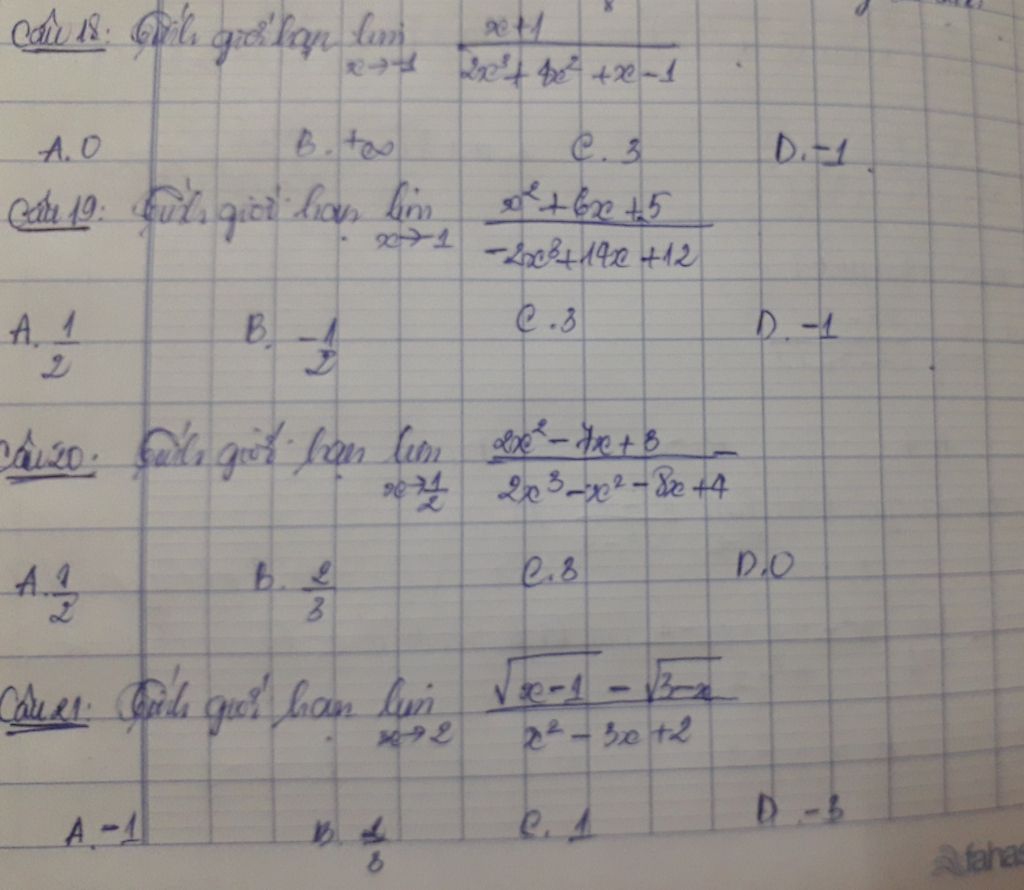 Câu 18: Tính giới hạn lim x→-1 x+1 / 2x³ + 4x² + x - 1
A. 0 B. +∞ C. 3 D. -1
Câu 19: Tính giới hạn lim x→-1 x² + 6x + 5 / -2x³ + 14x + 12
A. 1/2 B. -1/2 C. 3 D. -1
Câu 20. Tính giới hạn lim x→1/2 2x² - 7x + 3 / 2x³ - x² - 8x + 4
A. 1/2 B. 2/3 C. 3 D. 0
Câu 21. Tính giới hạn lim x→2 √x-1 - √3-x / x² - 3x + 2
A. -1 B. 1/3 C. 1 D. -3
fahas